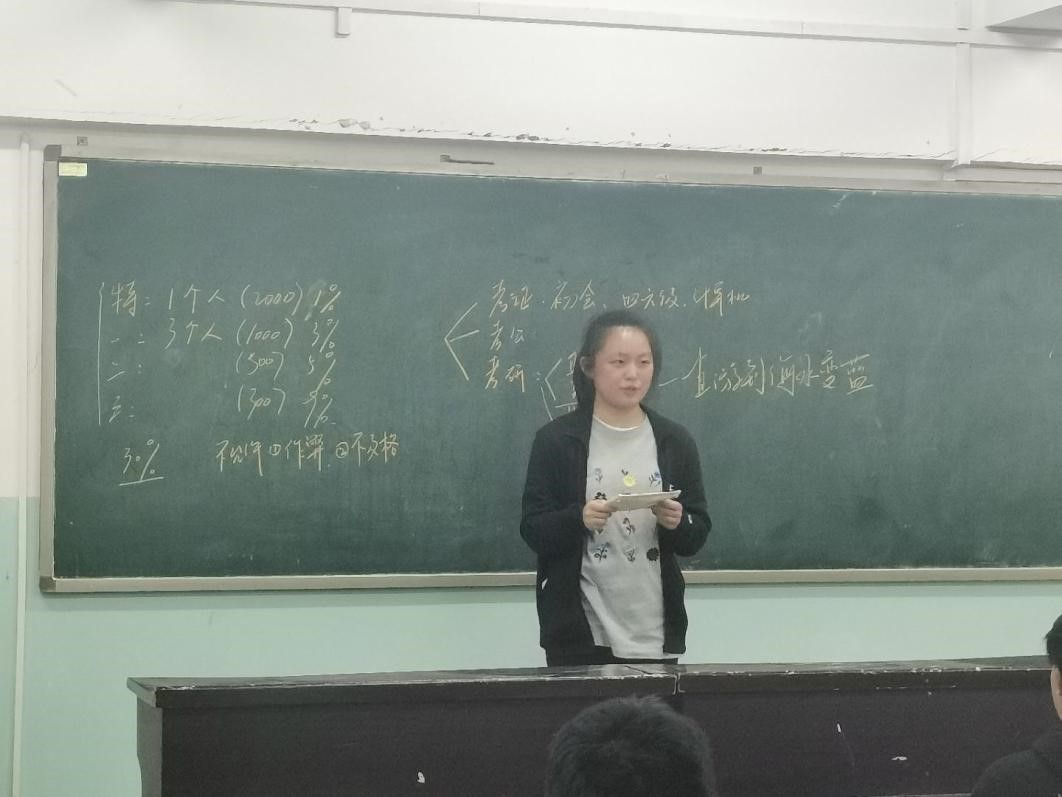 特：1个人(2000) 1%
一：3个人(1000) 3%
二：(500) 5%
三：(300)
30% 不允许①作弊 ②不及格
考证：初会、四六级、计算机
考公
考研：
一直游到海水变蓝